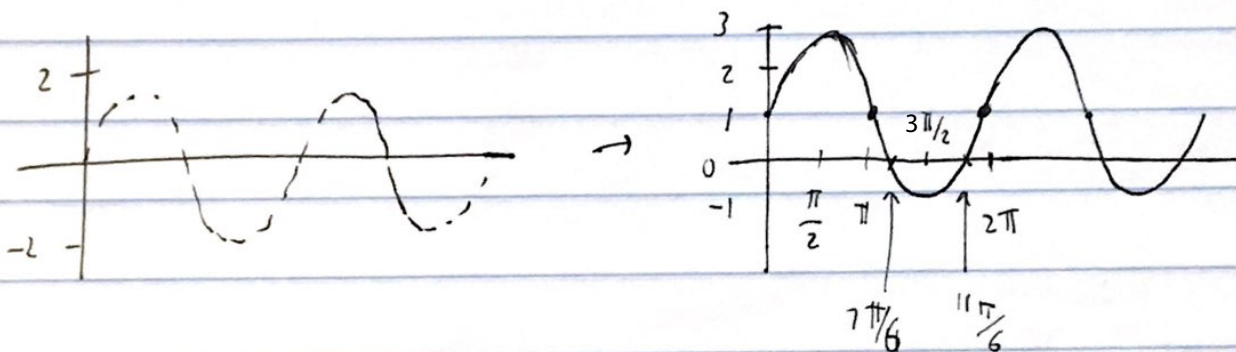 2
-2
→
3
2
1
0
-1
3π/2
π/2
π
2π
7π/6
11π/6